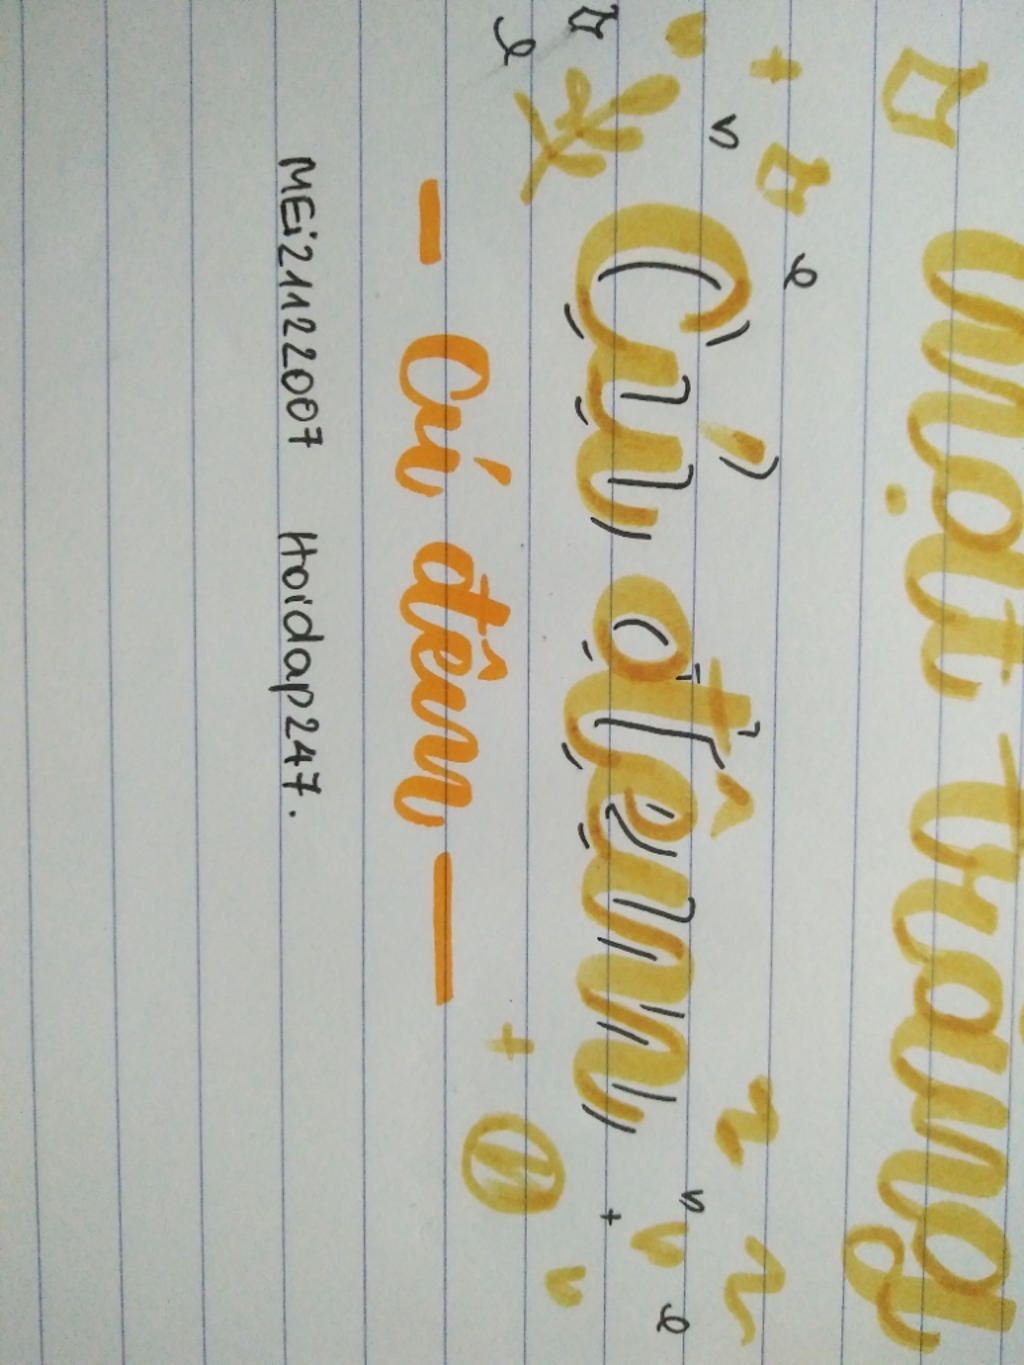 một trang
Cú đêm
Cú đêm
MEi21122007 Hoidap247.